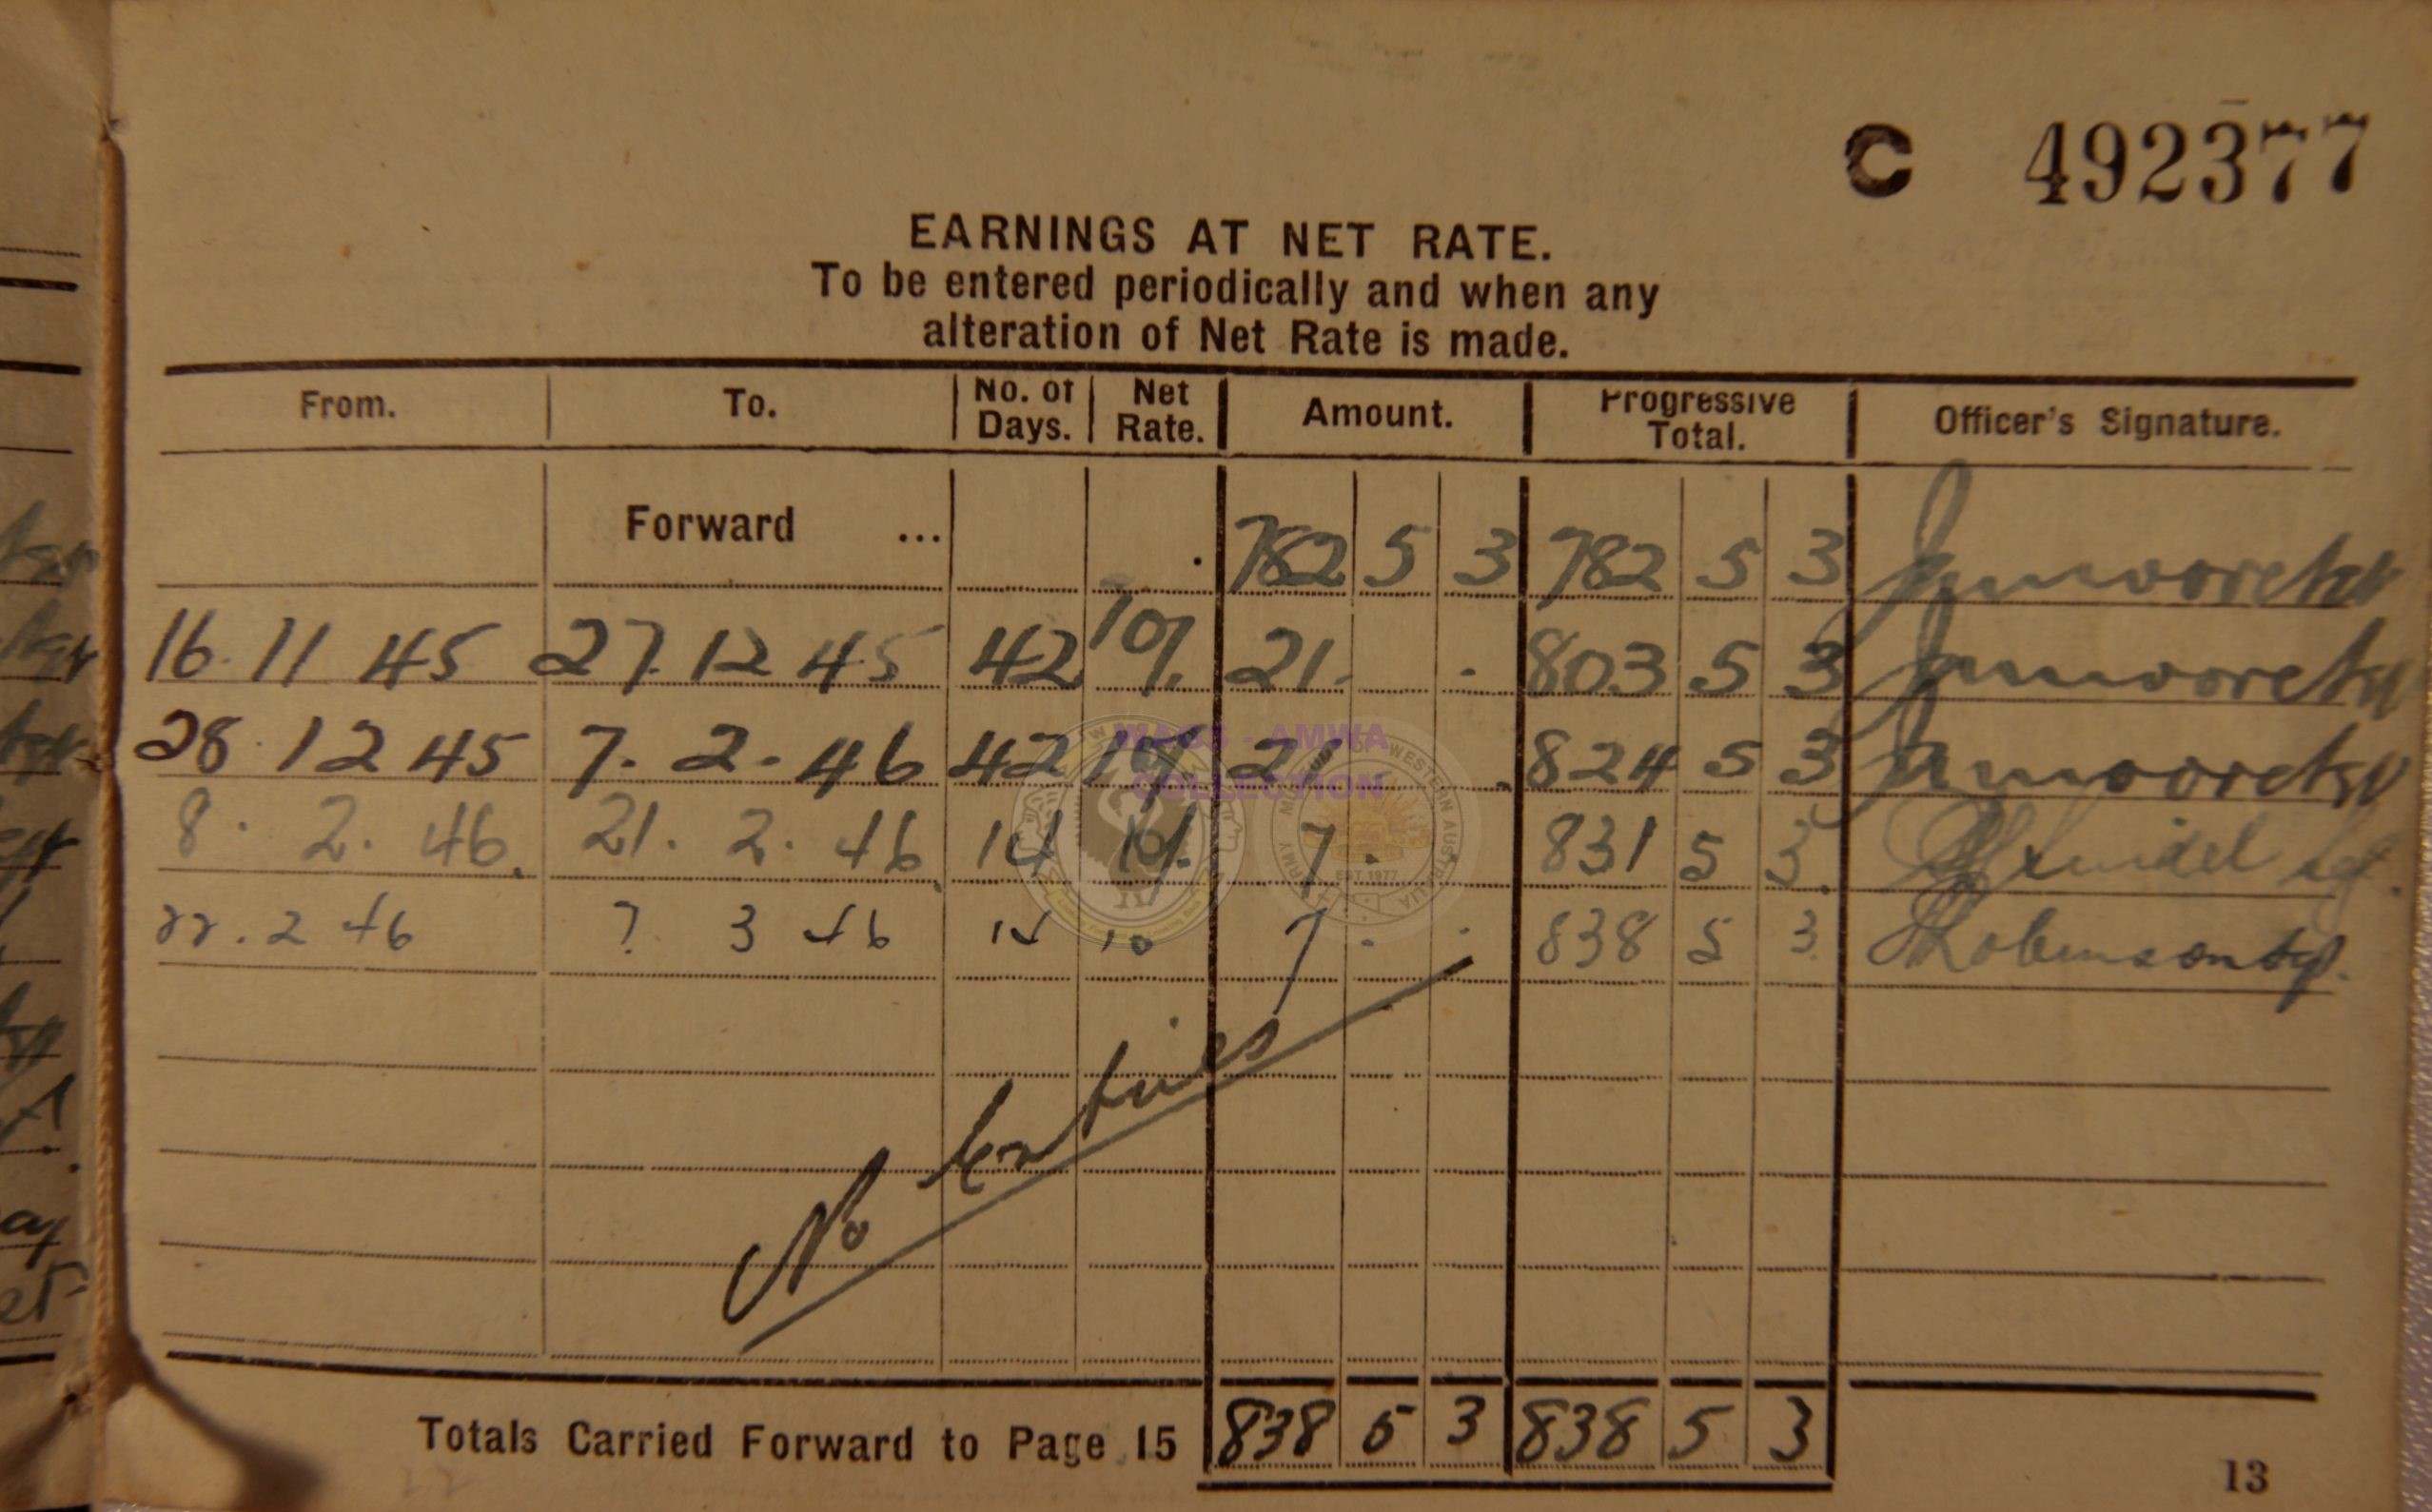 C 492377
EARNINGS AT NET RATE.
To be entered periodically and when any
alteration of Net Rate is made.
From. To. No. of Days. Net Rate. Amount. Progressive Total. Officer's Signature.
Forward ... 782 5 3 782 5 3
16. 11 45 27. 12 45 42 10/. 21. . 803 5 3
28. 12 45 7. 2. 46 42 10/. 21 . 824 5 3
8. 2. 46. 21. 2. 46 14 10/. 7. 831 5 3.
22. 2 46 7. 3 46 14 10 7 . . 838 5 3 Robinson
No Entries
Totals Carried Forward to Page 15 838 5 3 838 5 3
13
WAGS - AMWA
COLLECTION
ARMY MUSEUM OF WESTERN AUSTRALIA
EST 1977